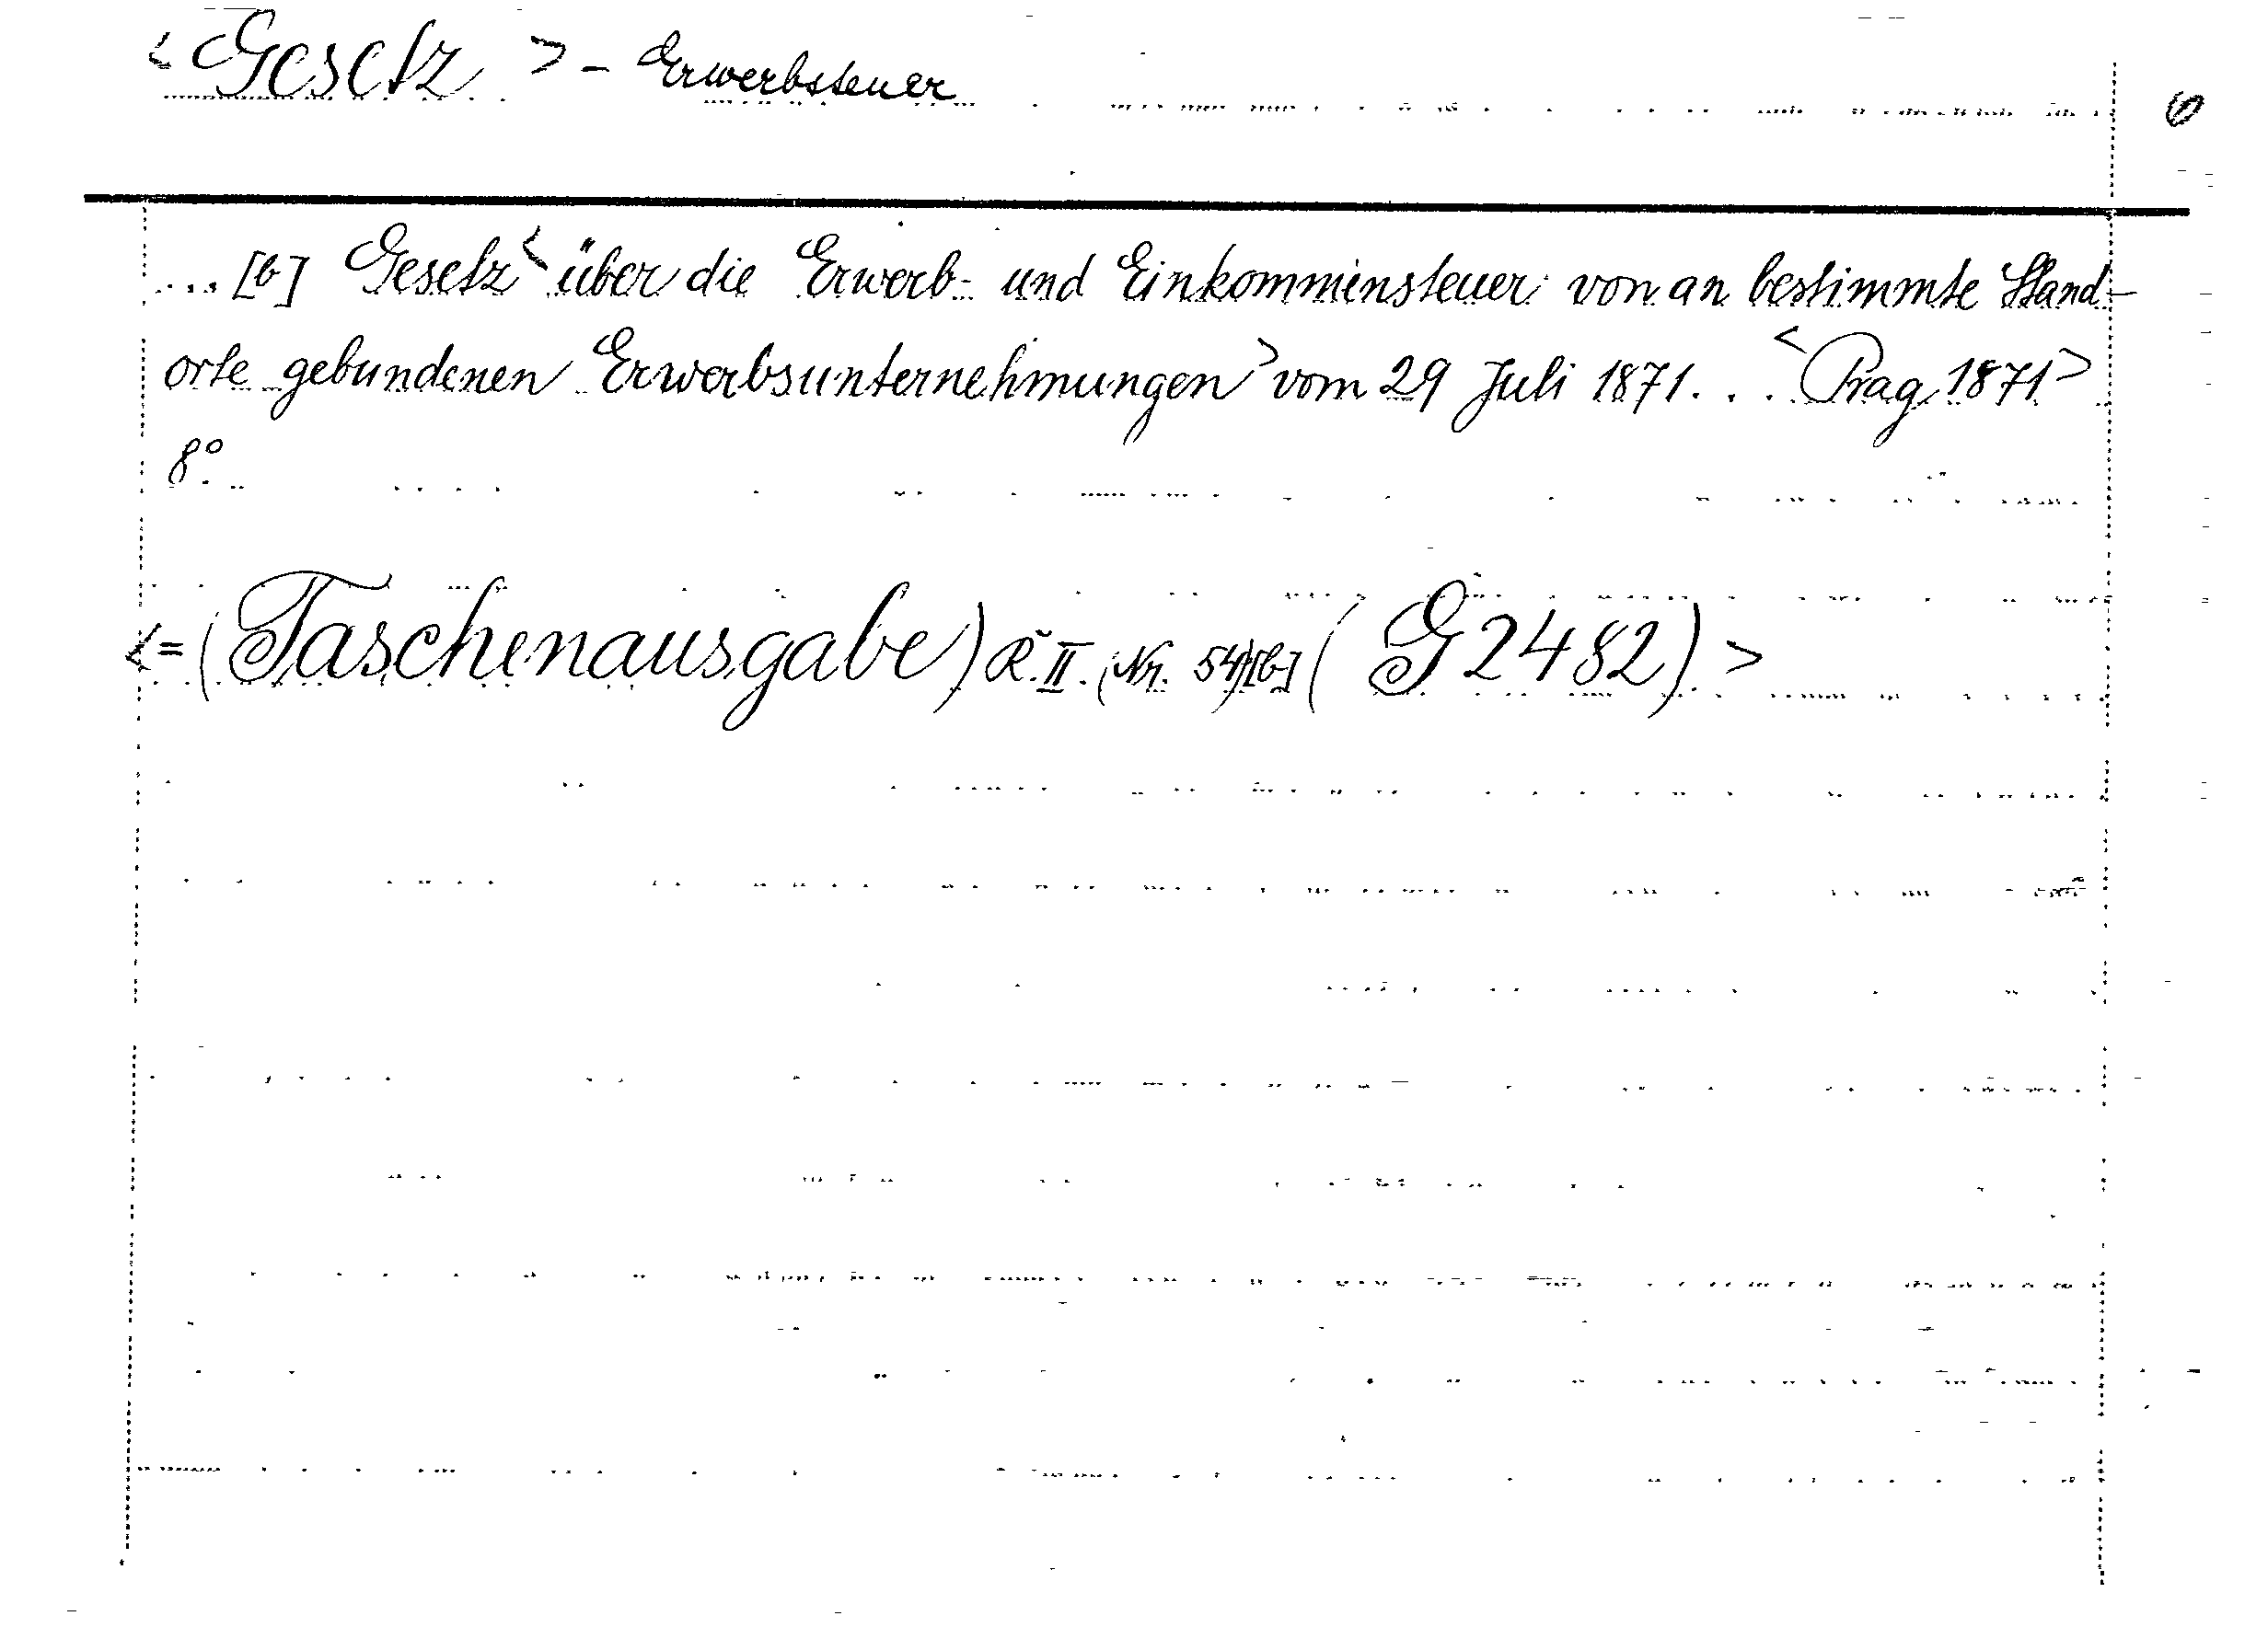 <Gesetz> - Erwerbsteuer
... [b] Gesetz < über die Erwerb- und Einkommensteuer von an bestimmte Stand-
orte gebundenen Erwerbsunternehmungen > vom 29 Juli 1871. . . <Prag 1871>
8°.
<=(Taschenausgabe) R. II. (Nr. 54)[b] (G 2482)>